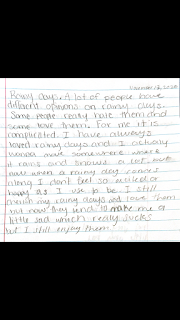 November
Rainy days. A lot of people have
different opinions on rainy days.
Some people really hate them and
some love them. For me it is
complicated. I have always
loved rainy days and I actually
wanna move somewhere where
it rains and snows a lot.
now when a rainy day comes
along I don't feel so excited or
happy as I use to be. I still
my rainy days and love them
but now they tend to make me a
little sad which really sucks
but I still enjoy them.